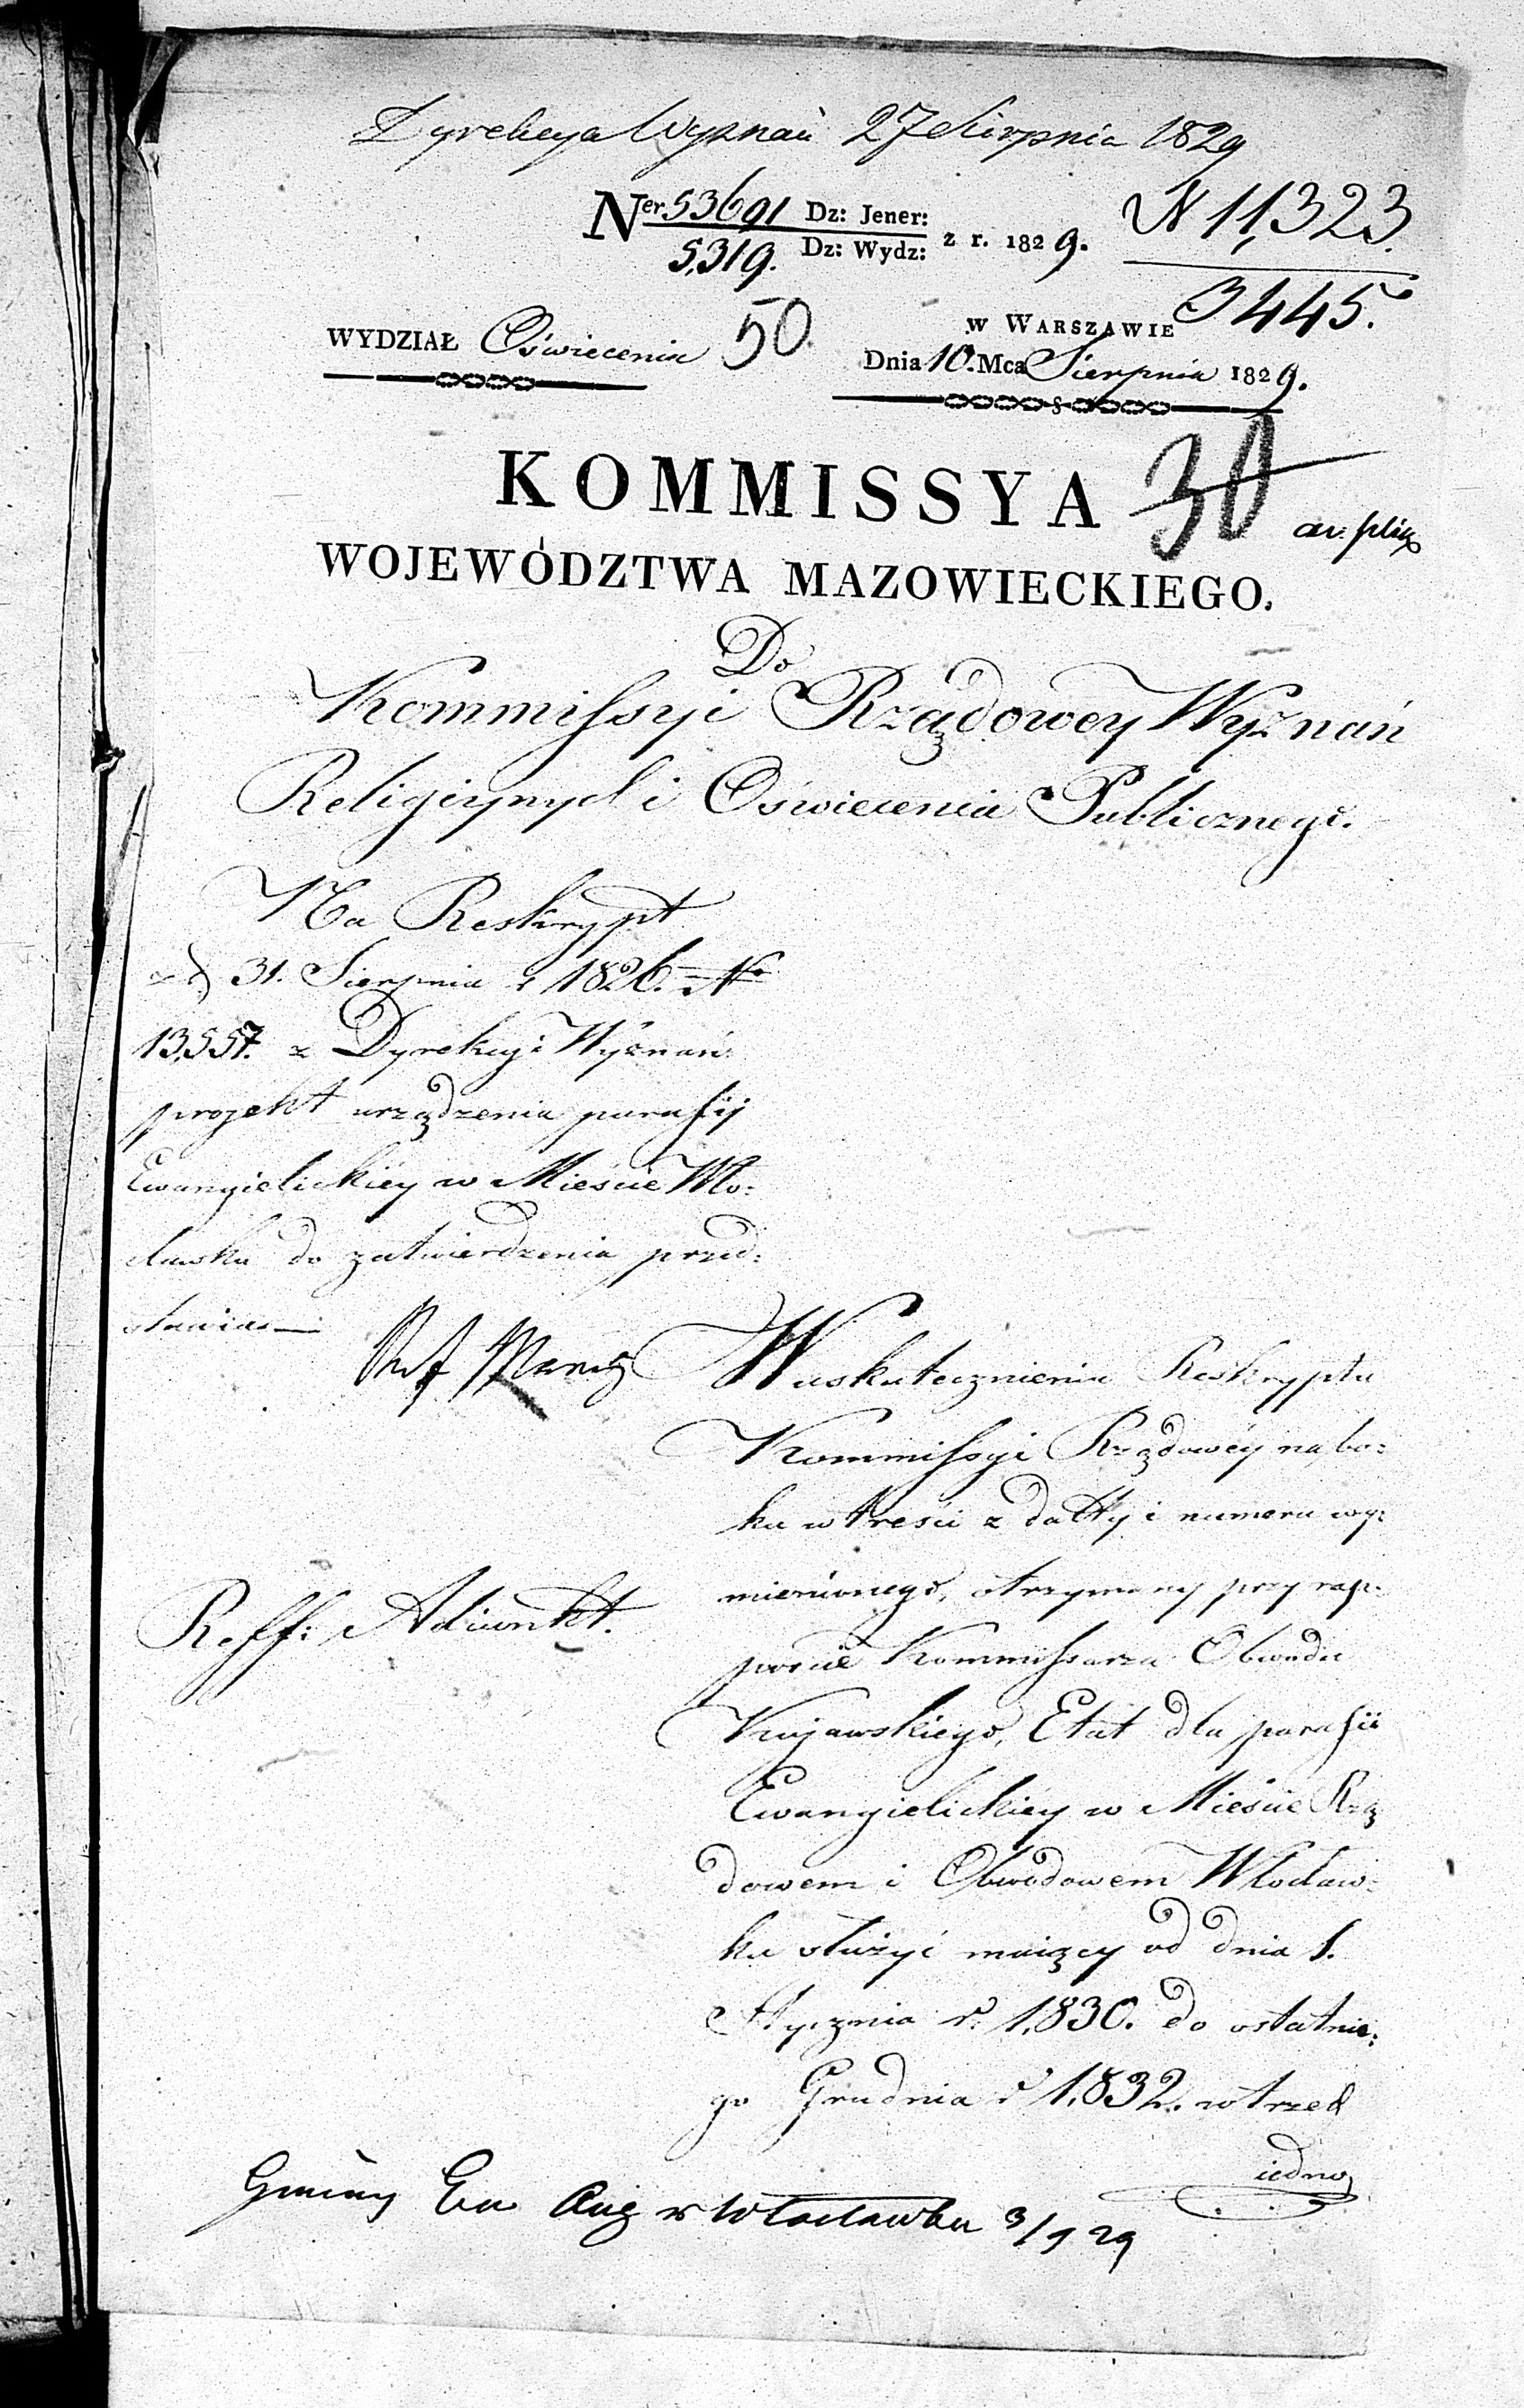 Dyrekcya Wyznań 27 Sierpnia 1829
Ner 53691 Dz: Jener:
5,319. Dz: Wydz: z r. 1829.
N 11,323.
3445.
WYDZIAŁ Oświecenia 50.
w WARSZAWIE
Dnia 10. Mca Sierpnia 1829.
KOMMISSYA
30
WOJEWÓDZTWA MAZOWIECKIEGO.
Do
Kommissyi Rządowey Wyznań
Religijnych i Oświecenia Publicznego.
Na Reskrypt
z d 31. Sierpnia r 1826. No
13,557. z Dyrekcyi Wyznań
projekt urządzenia parafij
Ewangielickiey w Mieście Wło-
cławku do zatwierdzenia przed-
stawia
Wuskutecznieniu Reskryptu
Kommissyi Rządowéy na bo-
ku w treści z datty i numeru wy-
mienionego, otrzymany przy rap-
porcie Kommissarza Obwodu
Kujawskiego, Etat dla parafii
Ewangielickiéy w Mieście Rzą
dowem i Obwodowem Włocław-
ku służyć maiący od dnia 1.
Reff: Adiunkt.
Stycznia r. 1,830. do ostatnie-
go Grudnia r 1,832. w trzech
iedno
Gminy Ew Aug w Włocławku 3/9 29